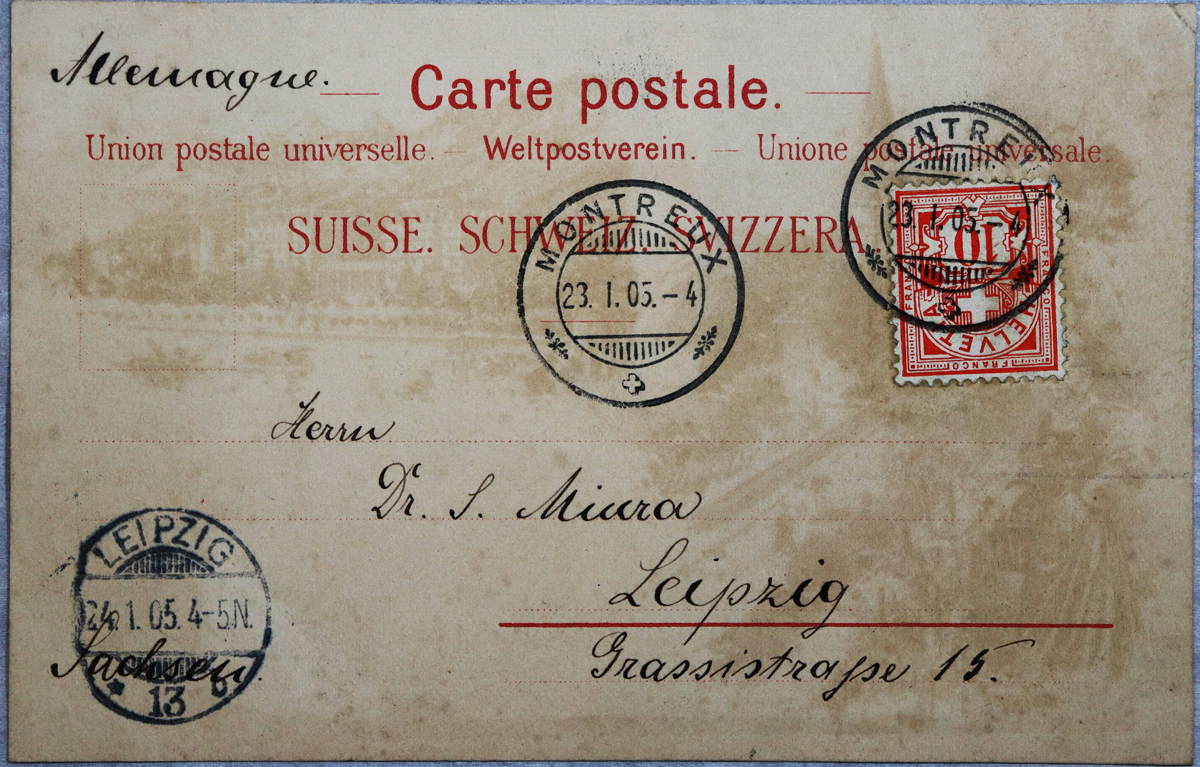 Allemagne.
Carte postale.
Union postale universelle. — Weltpostverein. — Unione postale universale.
SUISSE. SCHWEIZ. SVIZZERA.
MONTREUX
23. I. 05. – 4
MONTREUX
23. I. 05. – 4
10
FRANCO
FRANCO
FRANCO
HELVETIA
Herrn
Dr. S. Miura
Leipzig
Grassistraße 15.
LEIPZIG
24. 1. 05. 4-5N.
13 b.
Sachsen.